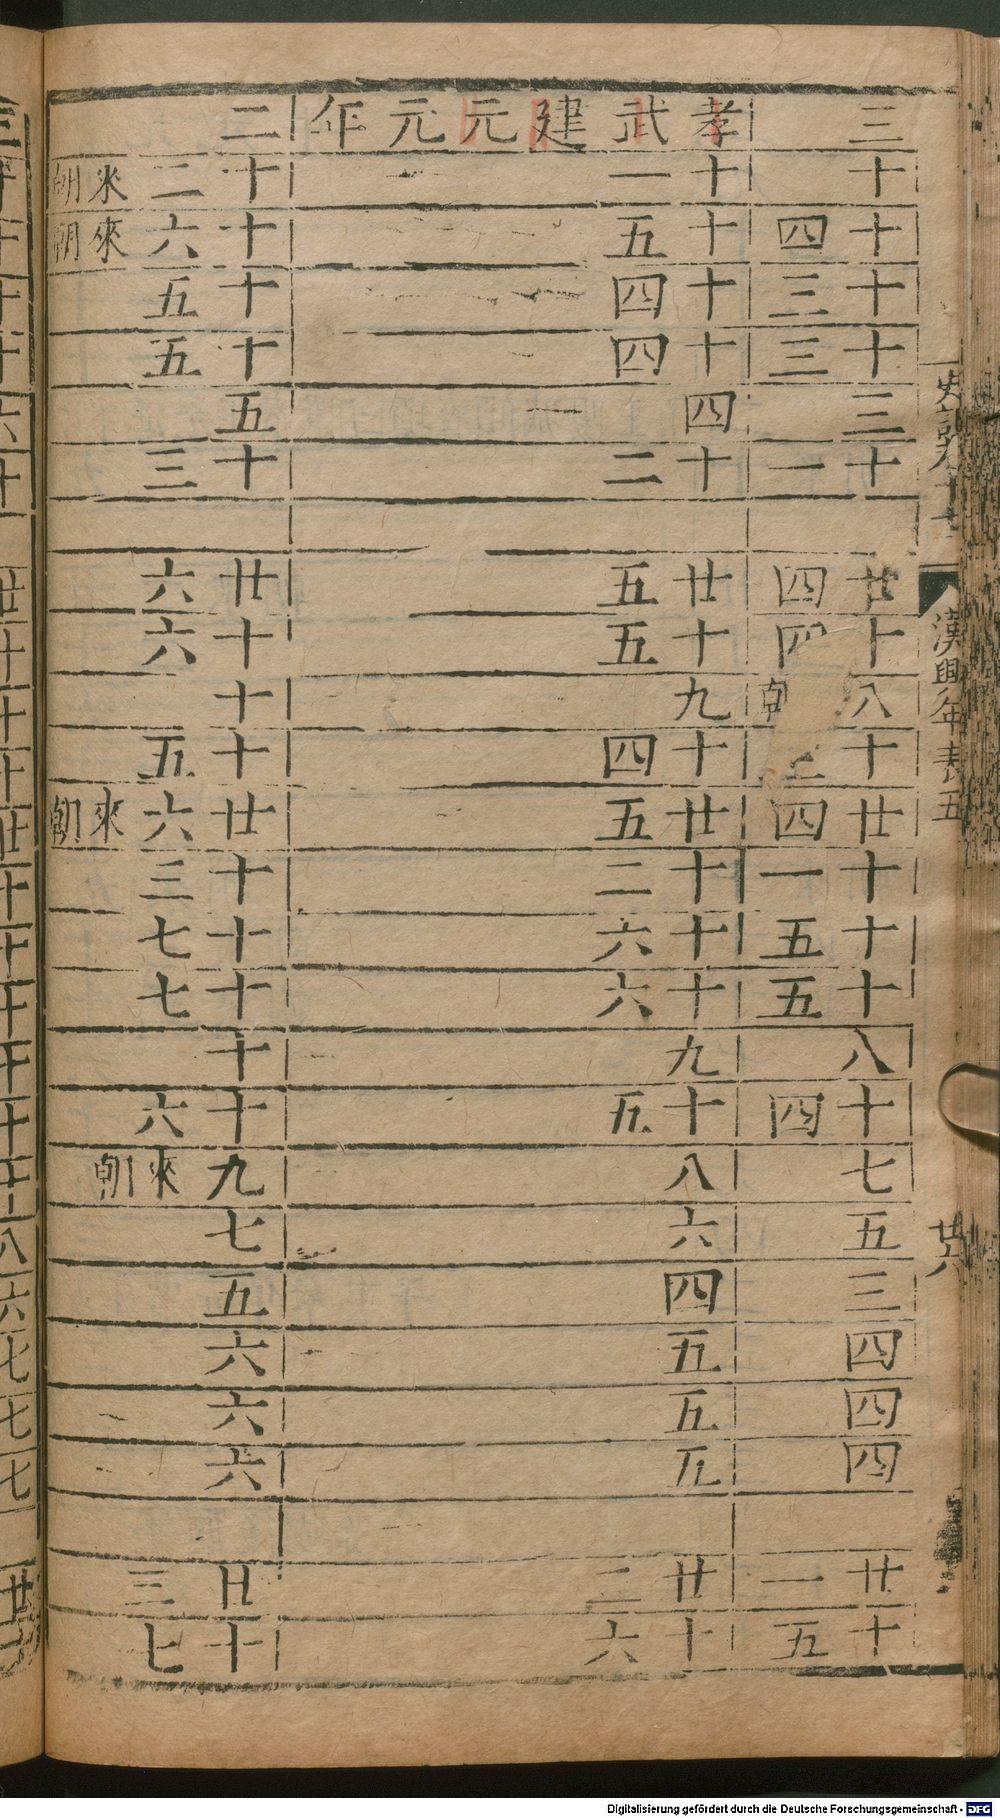 史記
漢興年表五
三
十
十四
十三
十三
三
十一
廿四
十四
八
十
廿四
十一
十五
十五
八
十四
七
五
三
四
四
四
廿一
十五
孝武建元元年
十一
十五
十四
十四
四
十二
廿五
十五
九
十四
廿五
十二
十六
十六
九
十五
八
六
四
五
五
五
廿二
十六
二
十二來朝
十六來朝
十五
十五
五
十三
廿六
十六
十
十五
廿六來朝
十三
十七
十七
十
十六
九來朝
七
五
六
六
六
廿三
十七
Digitalisierung gefördert durch die Deutsche Forschungsgemeinschaft - DFG